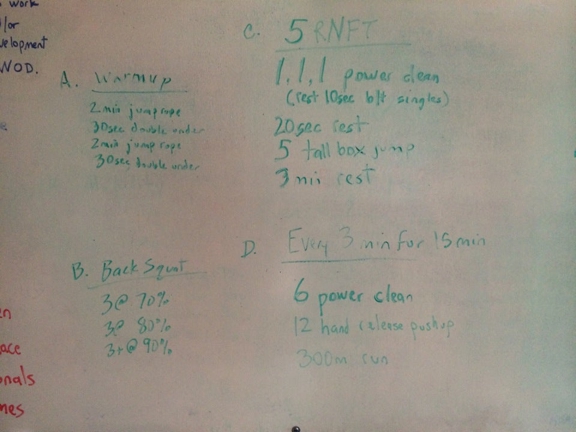 work
/or
velopment
WOD.
A. Warmup
2 min jump rope
30sec double under
2 min jump rope
30sec double under
B. Back Squat
3@ 70%
3@ 80%
3+@90%
C. 5 RNFT
1,1,1 power clean
(rest 10sec b/t singles)
20sec rest
5 tall box jump
3 min rest
D. Every 3 min for 15 min
6 power clean
12 hand release pushup
300m run
en
ace
onals
mes